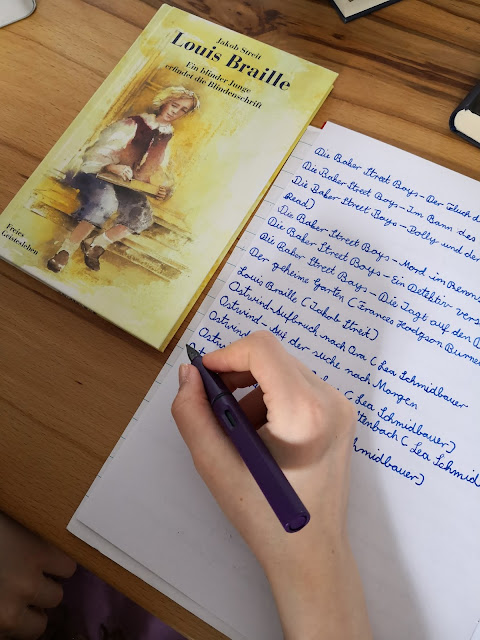 Jakob Streit
Louis Braille
Ein blinder Junge
erfindet die Blindenschrift
Freies
Geistesleben
Die Baker Street Boys - Der Fluch d
Die Baker Street Boys - Im Bann des
Die Baker Street Boys - Dolly und der
Read)
Die Baker Street Boys - Mord im Renns
Die Baker Street Boys - Ein Detektiv vers
Die Baker Street Boys - Die Jagt auf den D
Der geheime Garten (Frances Hodgson Burne
Louis Braille (Jakob Streit)
Ostwind-Aufbruch nach Ora (Lea Schmidbauer
Ostwind - Auf der suche nach Morgen
Ostwind (Lea Schmidbauer)
tenbach (Lea Schmid
chmidbauer)